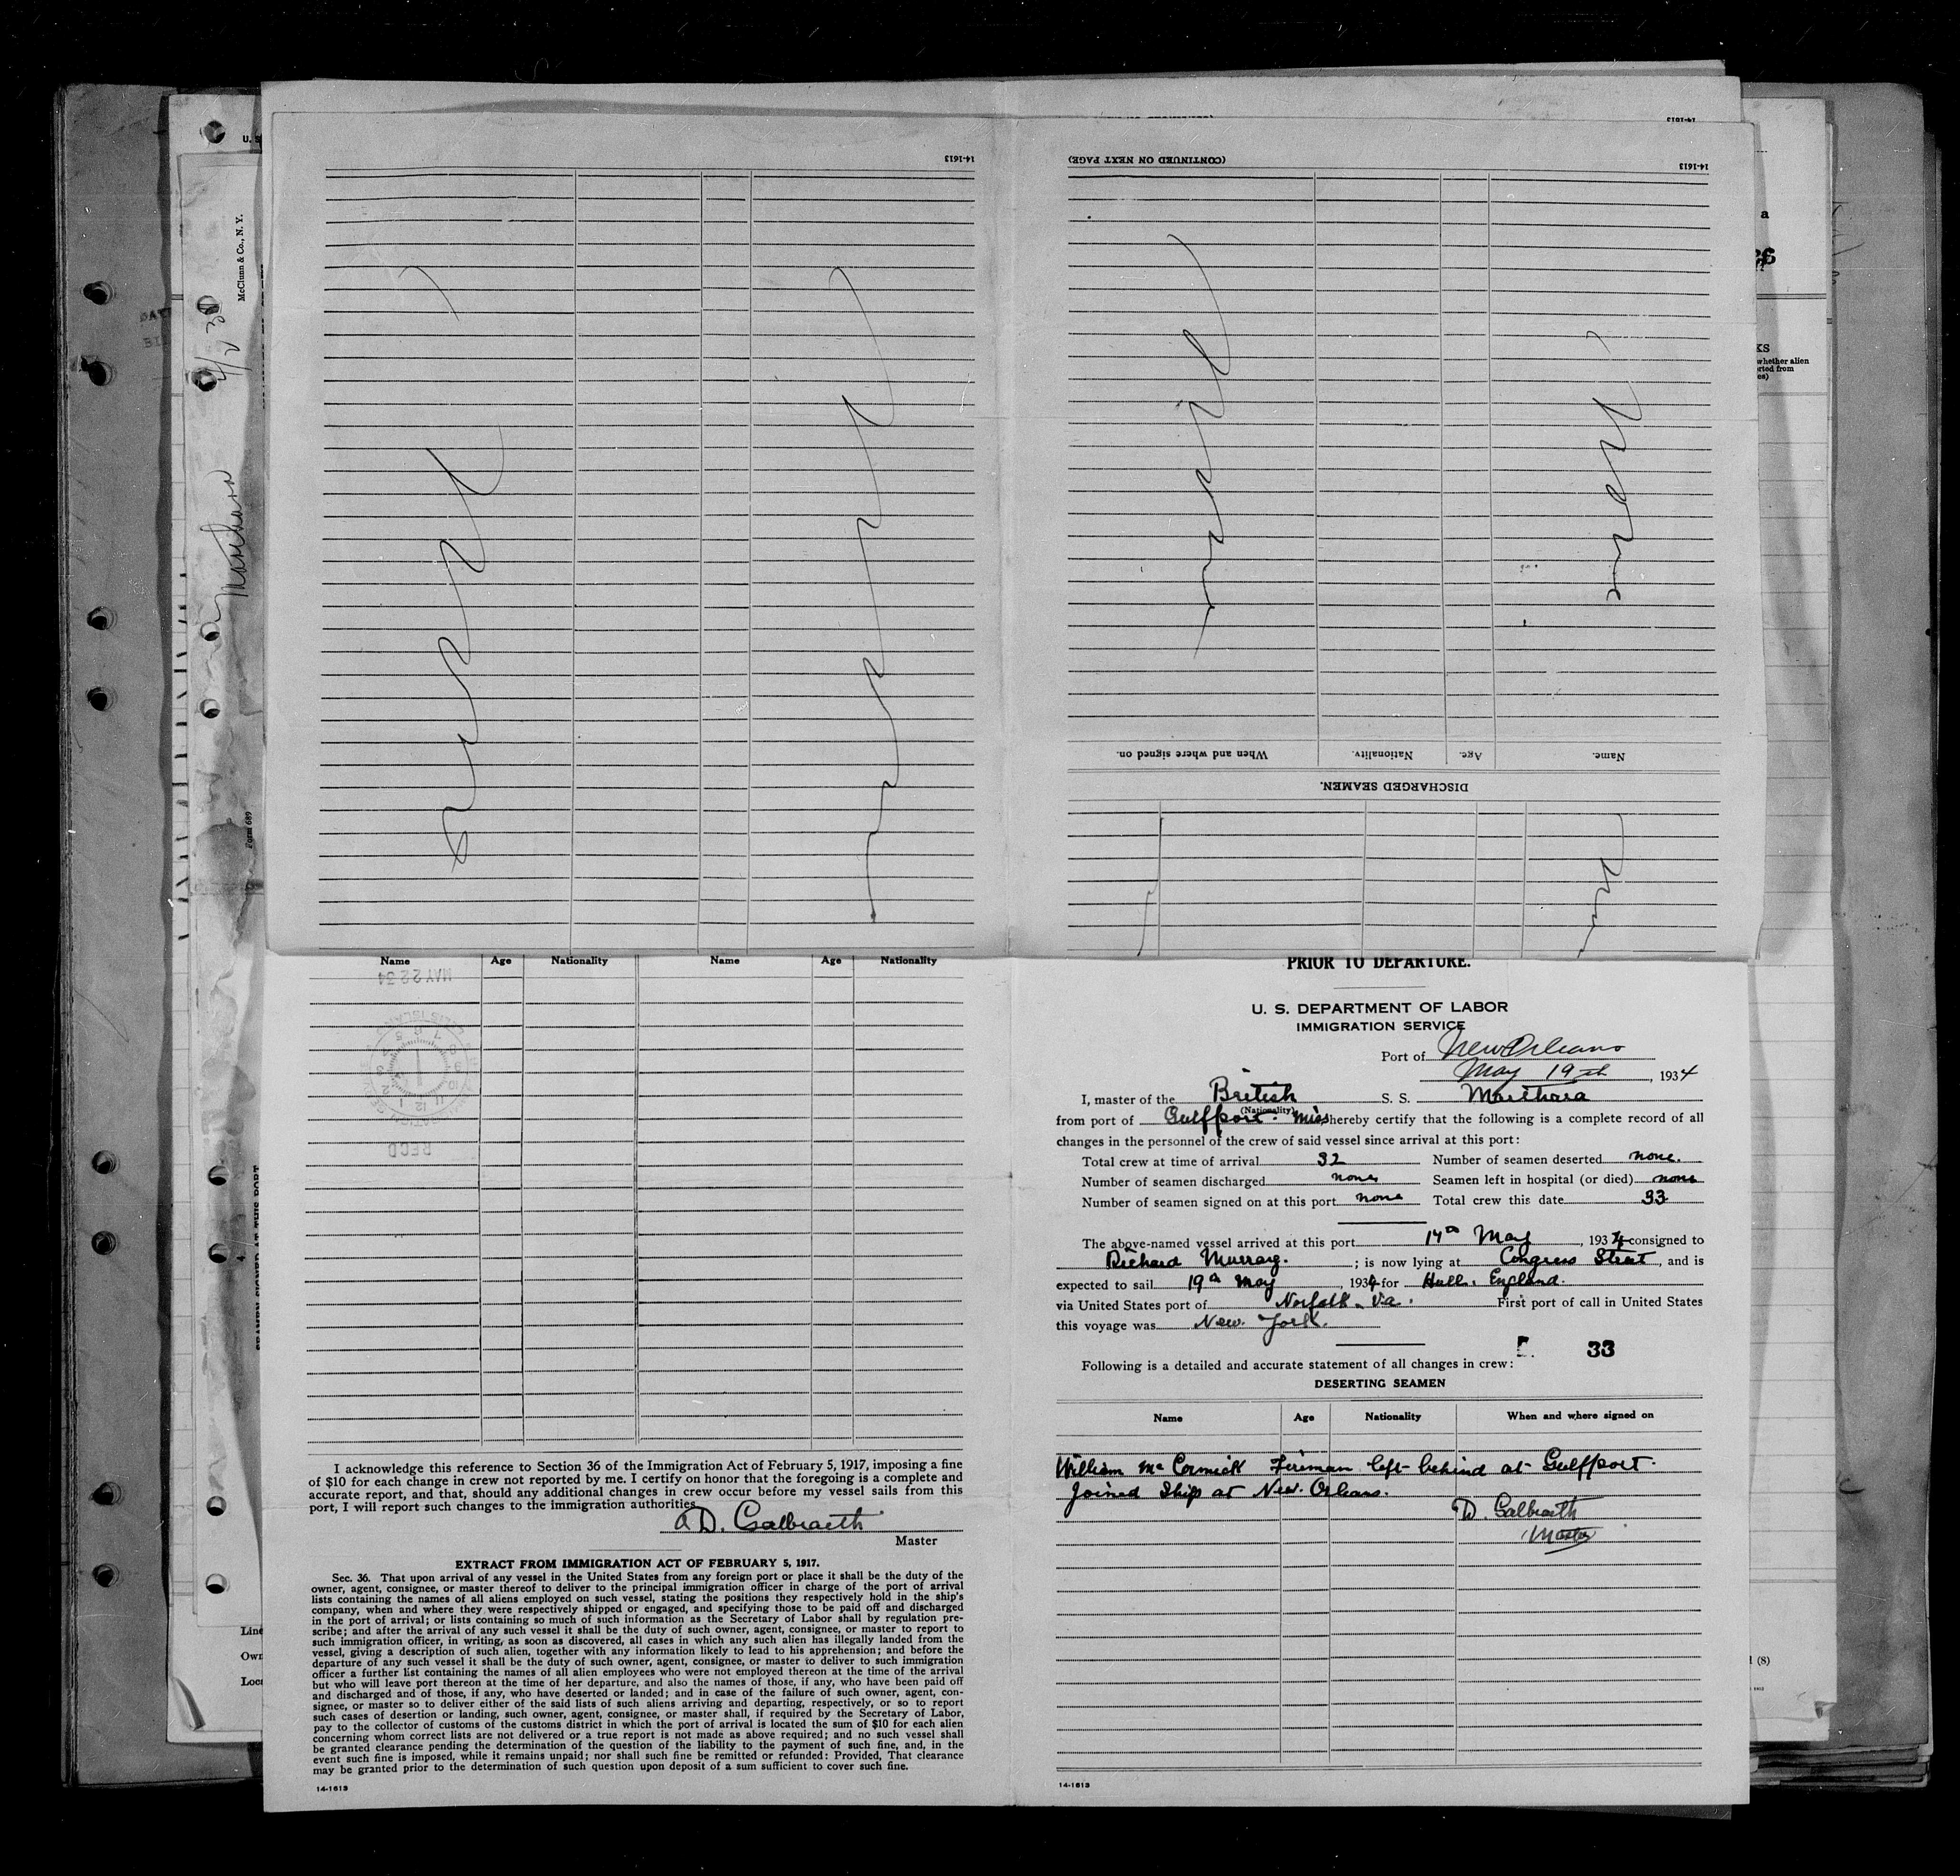 14-1613
(CONTINUED ON NEXT PAGE)
14-1613
When and where signed on.
Nationality.
Age.
Name.
DISCHARGED SEAMEN.
McClunn & Co., N. Y.
Form 689
Name Age Nationality Name Age Nationality
MAY 22 34
RECD
I acknowledge this reference to Section 36 of the Immigration Act of February 5, 1917, imposing a fine
of $10 for each change in crew not reported by me. I certify on honor that the foregoing is a complete and
accurate report, and that, should any additional changes in crew occur before my vessel sails from this
port, I will report such changes to the immigration authorities.
D. Galbraith
Master
EXTRACT FROM IMMIGRATION ACT OF FEBRUARY 5, 1917.
Sec. 36. That upon arrival of any vessel in the United States from any foreign port or place it shall be the duty of the
owner, agent, consignee, or master thereof to deliver to the principal immigration officer in charge of the port of arrival
lists containing the names of all aliens employed on such vessel, stating the positions they respectively hold in the ship's
company, when and where they were respectively shipped or engaged, and specifying those to be paid off and discharged
in the port of arrival; or lists containing so much of such information as the Secretary of Labor shall by regulation pre-
scribe; and after the arrival of any such vessel it shall be the duty of such owner, agent, consignee, or master to report to
such immigration officer, in writing, as soon as discovered, all cases in which any such alien has illegally landed from the
vessel, giving a description of such alien, together with any information likely to lead to his apprehension; and before the
departure of any such vessel it shall be the duty of such owner, agent, consignee, or master to deliver to such immigration
officer a further list containing the names of all alien employees who were not employed thereon at the time of the arrival
but who will leave port thereon at the time of her departure, and also the names of those, if any, who have been paid off
and discharged and of those, if any, who have deserted or landed; and in case of the failure of such owner, agent, con-
signee, or master so to deliver either of the said lists of such aliens arriving and departing, respectively, or so to report
such cases of desertion or landing, such owner, agent, consignee, or master shall, if required by the Secretary of Labor,
pay to the collector of customs of the customs district in which the port of arrival is located the sum of $10 for each alien
concerning whom correct lists are not delivered or a true report is not made as above required; and no such vessel shall
be granted clearance pending the determination of the question of the liability to the payment of such fine, and, in the
event such fine is imposed, while it remains unpaid; nor shall such fine be remitted or refunded: Provided, That clearance
may be granted prior to the determination of such question upon deposit of a sum sufficient to cover such fine.
14-1613
PRIOR TO DEPARTURE.
U. S. DEPARTMENT OF LABOR
IMMIGRATION SERVICE
Port of New Orleans
May 19th, 1934
I, master of the British S. S. Marthara
(Nationality)
from port of Gulfport. Miss hereby certify that the following is a complete record of all
changes in the personnel of the crew of said vessel since arrival at this port:
Total crew at time of arrival 32 Number of seamen deserted none.
Number of seamen discharged none Seamen left in hospital (or died) none
Number of seamen signed on at this port none Total crew this date 33
The above-named vessel arrived at this port 14th May, 1934 consigned to
Richard Murray.; is now lying at Congress Street, and is
expected to sail 19th May, 1934 for Hull. England.
via United States port of Norfolk. Va. First port of call in United States
this voyage was New York.
33
Following is a detailed and accurate statement of all changes in crew:
DESERTING SEAMEN
Name Age Nationality When and where signed on
William McCormick Fireman left behind at Gulfport.
Joined Ship at New Orleans.
D. Galbraith
Master
14-1613